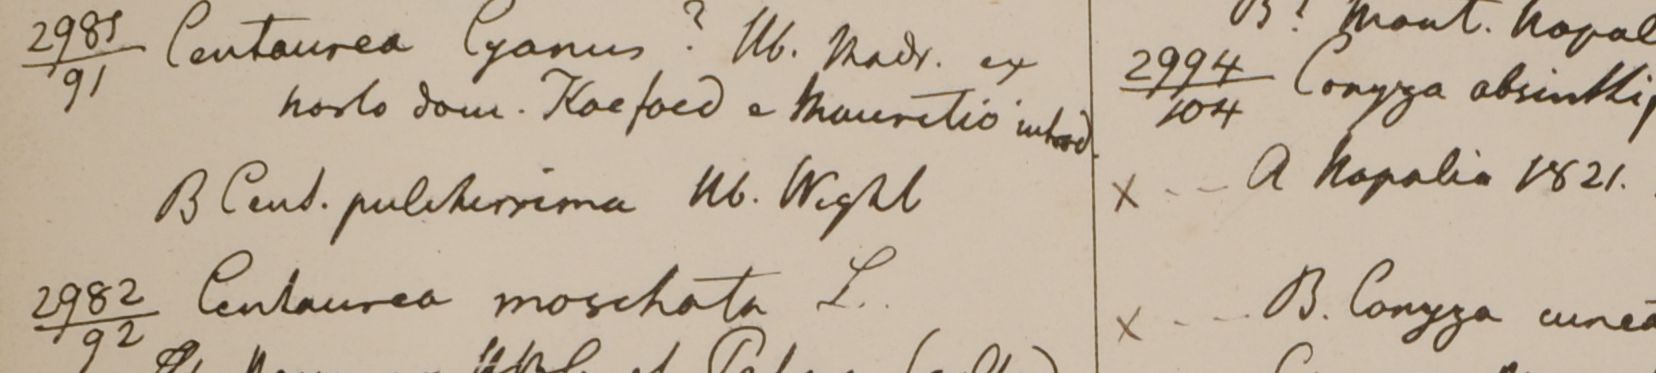 2981/91 Centaurea Cyanus? Hb. Madr. ex
horto dom. Koefoed e Mauritio introd.
B Cent. pulcherrima Hb. Wight
2982/92 Centaurea moschata L.
B? Mont. Napal
2994/104 Conyza absinthif
x - - A Napalia 1821.
x - - B. Conyza cunea